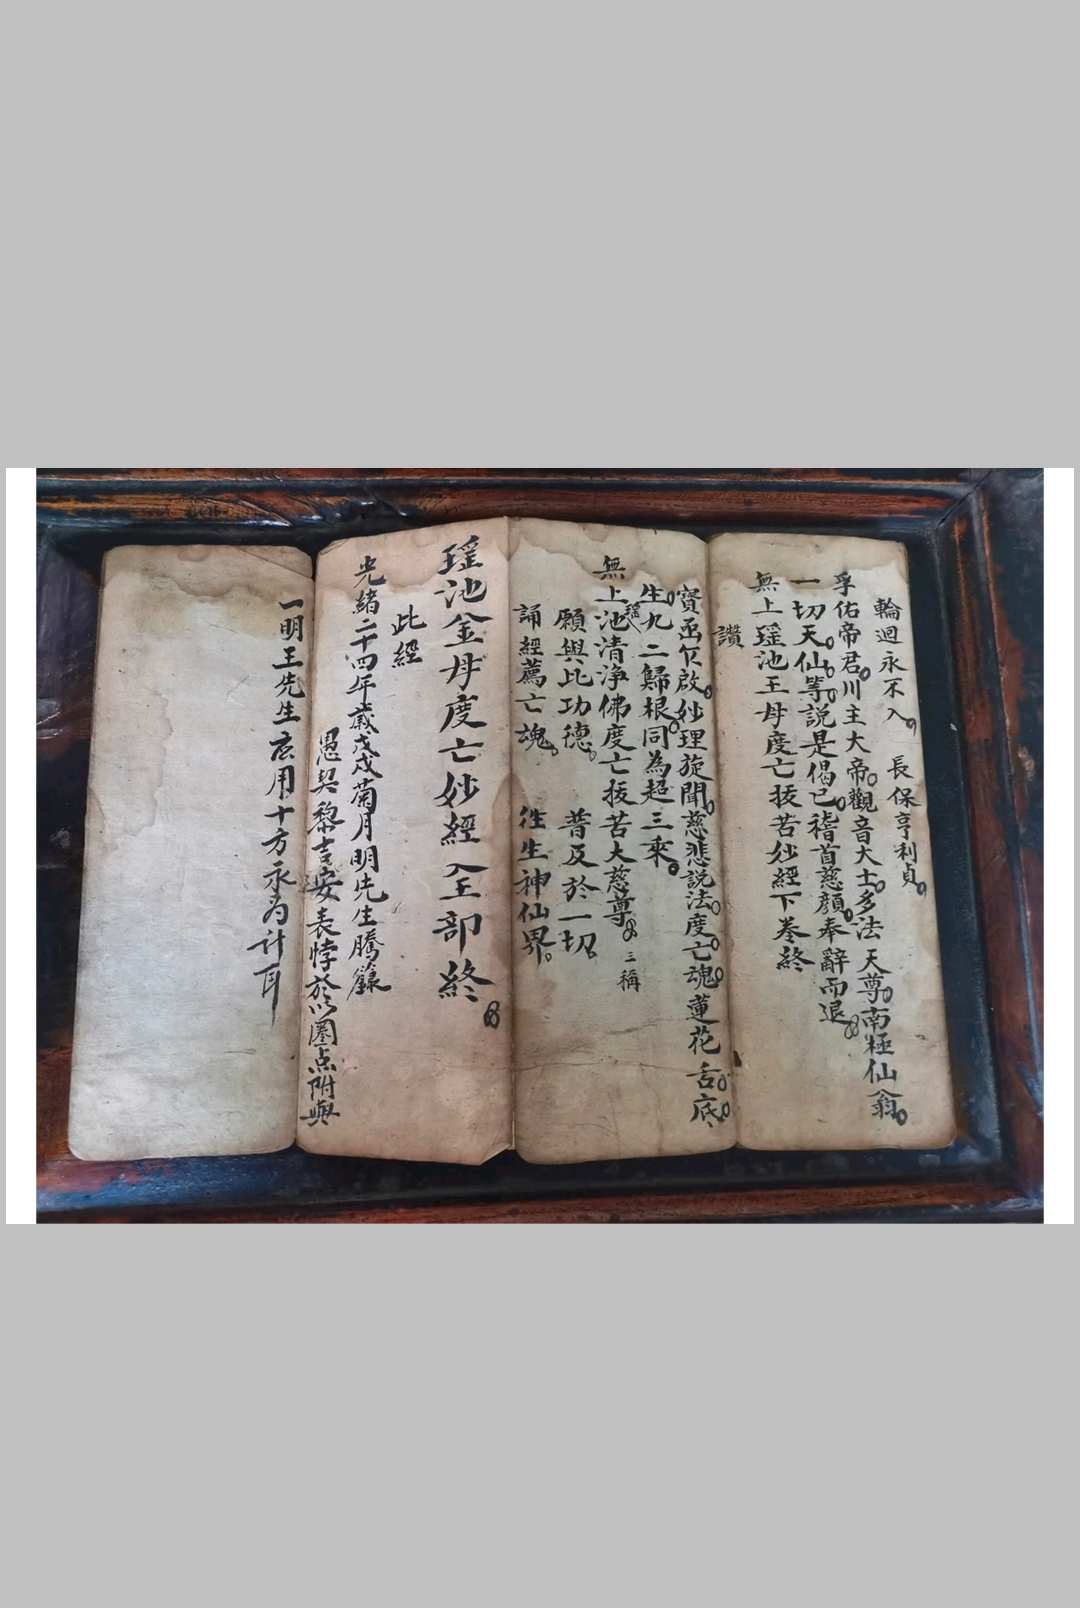 輪迴永不入 長保亨利貞
孚佑帝君川主大帝觀音大士多法天尊南極仙翁
一切天仙等說是偈已稽首慈顏奉辭而退
無上瑶池王母度亡拔苦妙經下卷終
讚
寶函乍啟妙理旋聞慈悲說法度亡魂蓮花舌底
生九二歸根同為超三乘
無上瑶池清淨佛度亡拔苦大慈尊 三稱
願與比功德 普及於一切
誦經薦亡魂 徃生神仙界
瑶池金母度亡妙經全部終
此經
光緒二十四年歲戊戌菊月明先生騰籙
愚契黎吉安表悖於以圈点附與
一明王先生應用十方永為計耳